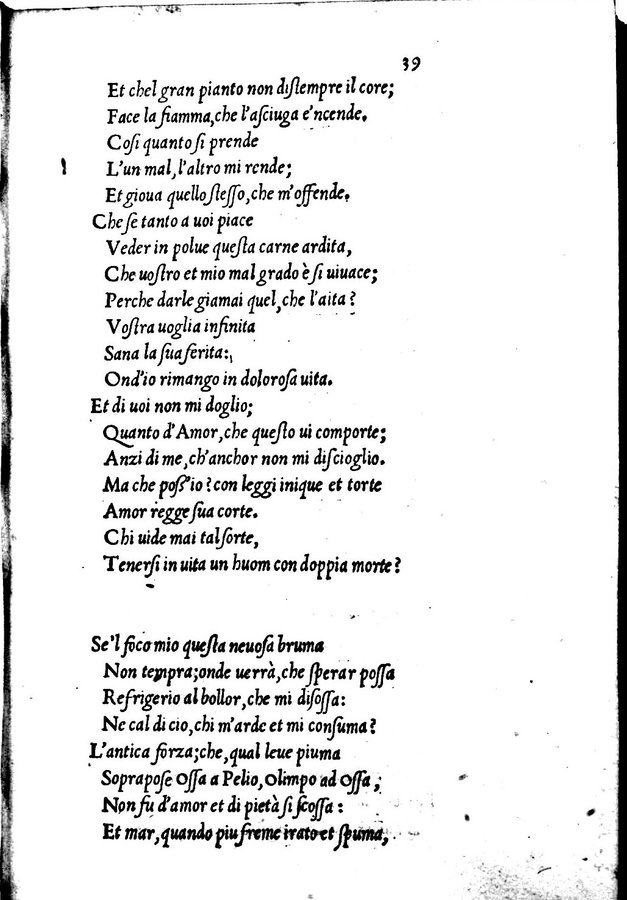 39
Et chel gran pianto non distempre il core;
Face la fiamma,che l'asciuga e'ncende.
Cosi quanto si prende
L'un mal,l'altro mi rende;
Et gioua quello stesso,che m'offende.
Che se tanto a uoi piace
Veder in polue questa carne ardita,
Che uostro et mio mal grado è si uiuace;
Perche darle giamai quel,che l'aita?
Vostra uoglia infinita
Sana la sua ferita:
Ond'io rimango in dolorosa uita.
Et di uoi non mi doglio;
Quanto d'Amor,che questo ui comporte;
Anzi di me,ch'anchor non mi discioglio.
Ma che poss'io?con leggi inique et torte
Amor regge sua corte.
Chi uide mai tal sorte,
Tenersi in uita un huom con doppia morte?
Se'l foco mio questa neuosa bruma
Non tempra;onde uerrà,che sperar possa
Refrigerio al bollor,che mi disossa:
Ne cal di cio,chi m'arde et mi consuma?
L'antica forza;che,qual leue piuma
Soprapose Ossa a Pelio,Olimpo ad Ossa;
Non fu d'amor et di pietà si scossa:
Et mar,quando piu freme irato et spuma,